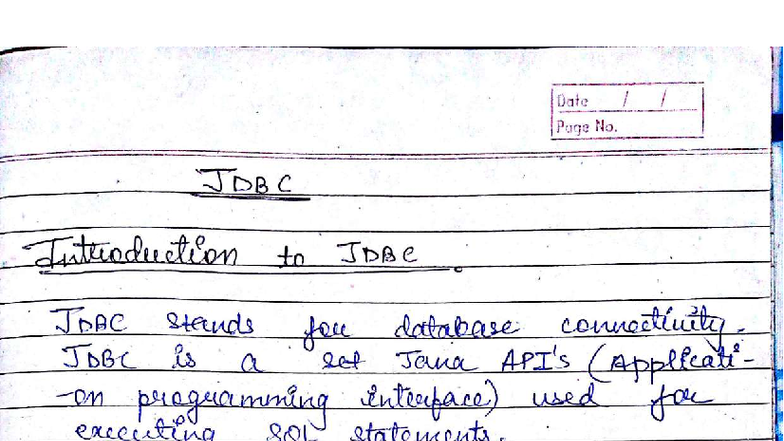 Date / /
Page No.
JDBC
Introduction to JDBC.
JDBC stands for database connectivity.
JDBC is a set Java API's (Applicati-
-on programming interface) used for
executing SQL statements.